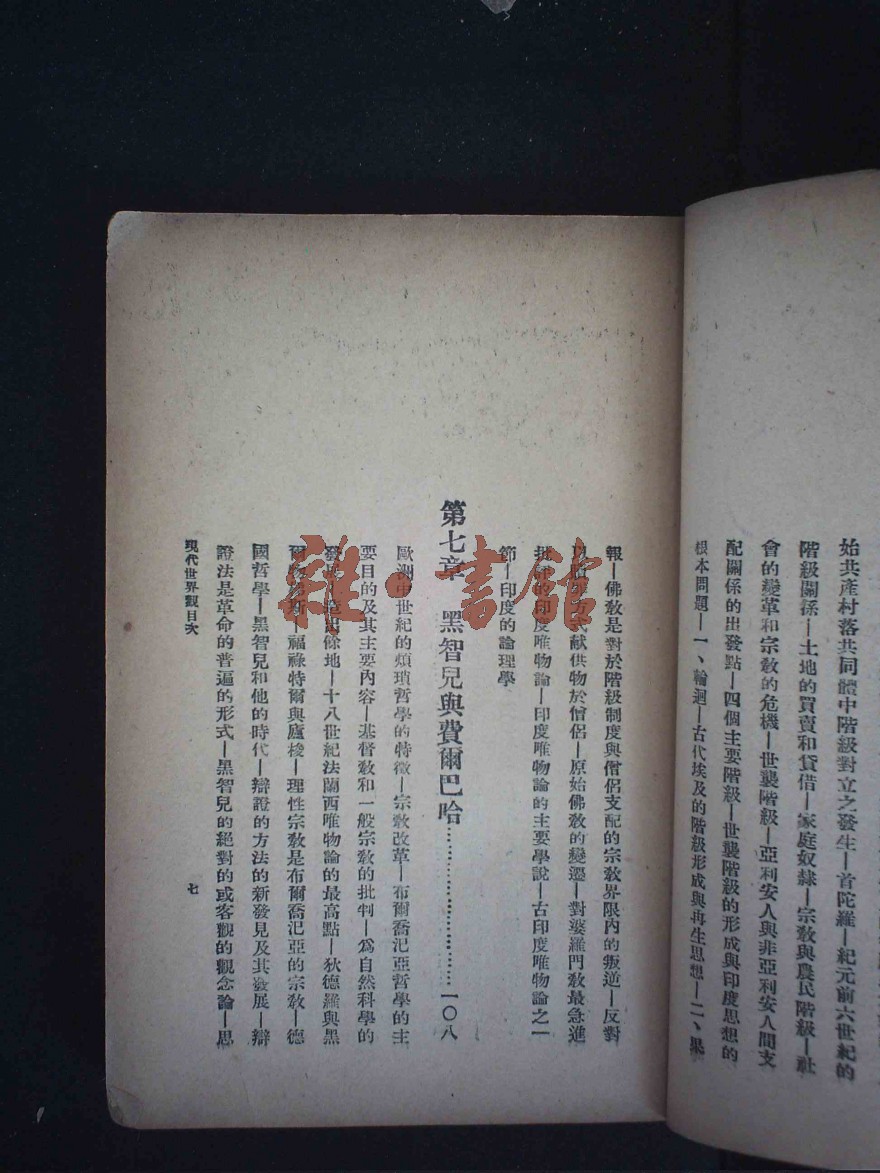 始共產村落共同體中階級對立之發生—首陀羅—紀元前六世紀的
階級關係—土地的買賣和貸借—家庭奴隸—宗教與農民階級—社
會的變革和宗教的危機—世襲階級—亞利安人與非亞利安人間支
配關係的出發點—四個主要階級—世襲階級的形成與印度思想的
根本問題—一、輪迴—古代埃及的階級形成與再生思想—二、果
報—佛教是對於階級制度與僧侶支配的宗教界限內的叛逆—反對
方式献供物於僧侶—原始佛教的變遷—對婆羅門教最急進
批評的印度唯物論—印度唯物論的主要學說—古印度唯物論之一
節—印度的論理學
第七章 黑智兒與費爾巴哈……………………一〇八
歐洲中世紀的煩瑣哲學的特徵—宗教改革—布爾喬汜亞哲學的主
要目的及其主要內容—基督教和一般宗教的批判—爲自然科學的
發展造出餘地—十八世紀法蘭西唯物論的最高點—狄德羅與黑
爾斯—福祿特爾與廬梭—理性宗教是布爾喬汜亞的宗教—德
國哲學—黑智兒和他的時代—辯證的方法的新發見及其發展—辯
證法是革命的普遍的形式—黑智兒的絕對的或客觀的觀念論—思
現代世界觀目次
七
雜·書館